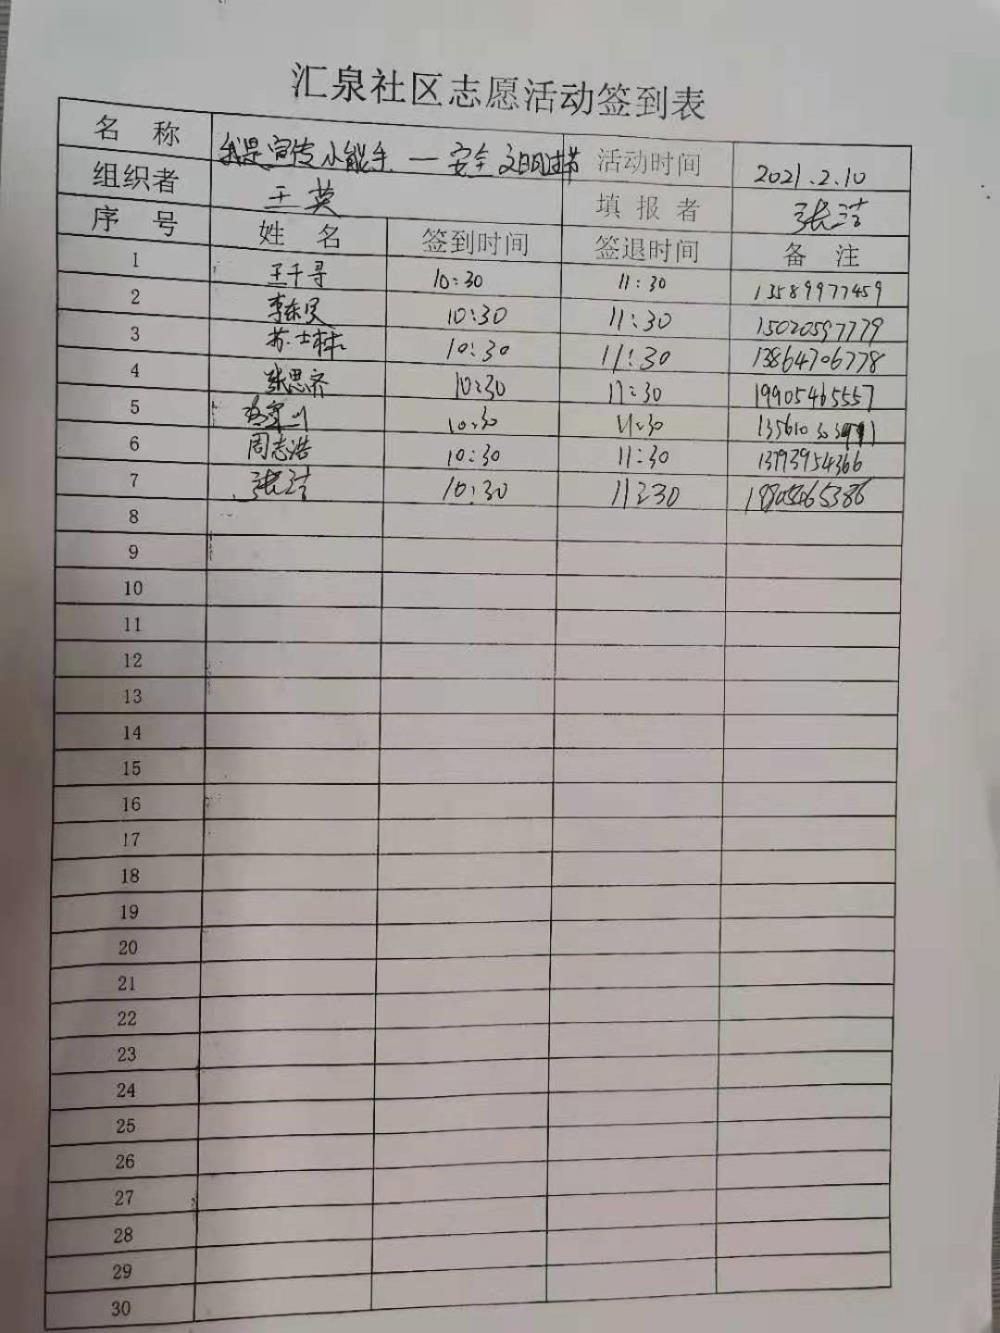 汇泉社区志愿活动签到表
名 称 我是宣传小能手—安全文明过节 活动时间 2021.2.10
组织者 王英 填报者 张洁
序 号 姓 名 签到时间 签退时间 备 注
1 王千寻 10:30 11:30 13589977459
2 李东旻 10:30 11:30 15020597779
3 苏士林 10:30 11:30 13864706778
4 张思齐 10:30 11:30 19905465557
5 10:30 11:30
6 周志浩 10:30 11:30 13793954366
7 张洁 10:30 11:30 19805465386
8
9
10
11
12
13
14
15
16
17
18
19
20
21
22
23
24
25
26
27
28
29
30